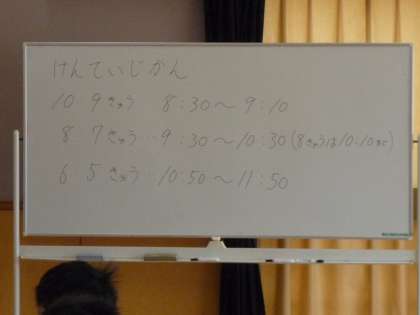 けんていじかん
10 9きゅう 8:30〜9:10
8 7きゅう‥9:30〜10:30(8きゅうは10:10まで)
6 5きゅう‥10:50〜11:50